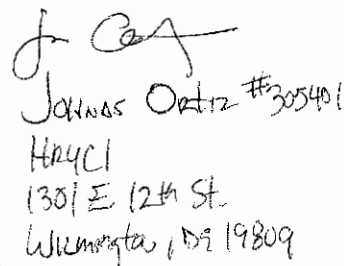 Johnas Ortiz #305401
HRYCI
1301 E 12th St.
Wilmington, DE 19809